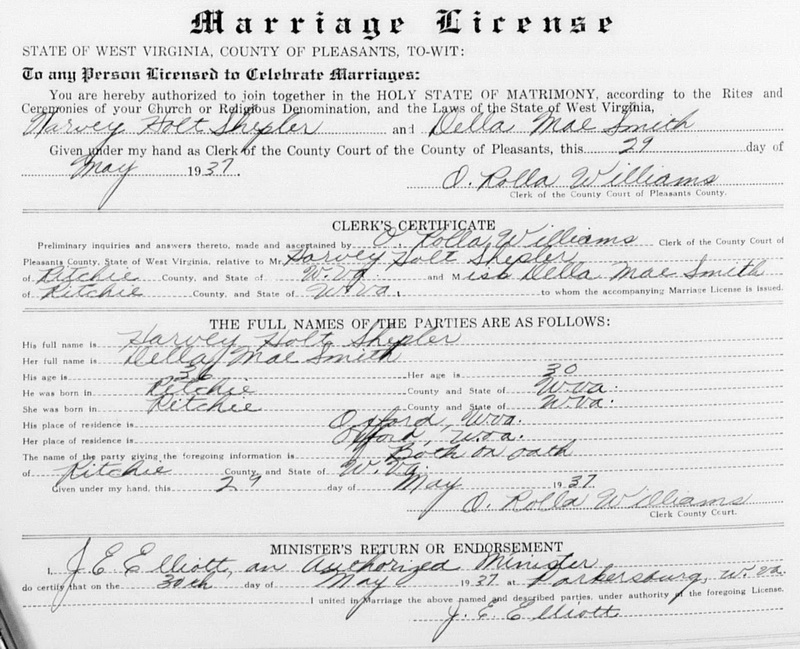 Marriage License
STATE OF WEST VIRGINIA, COUNTY OF PLEASANTS, TO-WIT:
To any Person Licensed to Celebrate Marriages:
You are hereby authorized to join together in the HOLY STATE OF MATRIMONY, according to the Rites and
Ceremonies of your Church or Religious Denomination, and the Laws of the State of West Virginia,
Harvey Holt Shepler and Della Mae Smith
Given under my hand as Clerk of the County Court of the County of Pleasants, this 29 day of
May 1937.
O. Rolla Williams
Clerk of the County Court of Pleasants County.
CLERK'S CERTIFICATE
Preliminary inquiries and answers thereto, made and ascertained by O. Rolla Williams Clerk of the County Court of
Pleasants County, State of West Virginia, relative to Mr. Harvey Holt Shepler
of Ritchie County, and State of W.Va and Miss Della Mae Smith
of Ritchie County, and State of W.Va. to whom the accompanying Marriage License is issued.
THE FULL NAMES OF THE PARTIES ARE AS FOLLOWS:
His full name is Harvey Holt Shepler
Her full name is Della Mae Smith
His age is 36 Her age is 30
He was born in Ritchie County and State of W.Va.
She was born in Ritchie County and State of W.Va.
His place of residence is Oxford, W.Va.
Her place of residence is Oxford, W.Va.
The name of the party giving the foregoing information is Both on oath
of Ritchie County, and State of W.Va.
Given under my hand, this 29 day of May 1937.
O. Rolla Williams
Clerk County Court.
MINISTER'S RETURN OR ENDORSEMENT
I, J. E. Elliott, an Authorized Minister
do certify that on the 30th day of May 1937 at Parkersburg, W.Va.
I united in Marriage the above named and described parties, under authority of the foregoing License.
J. E. Elliott